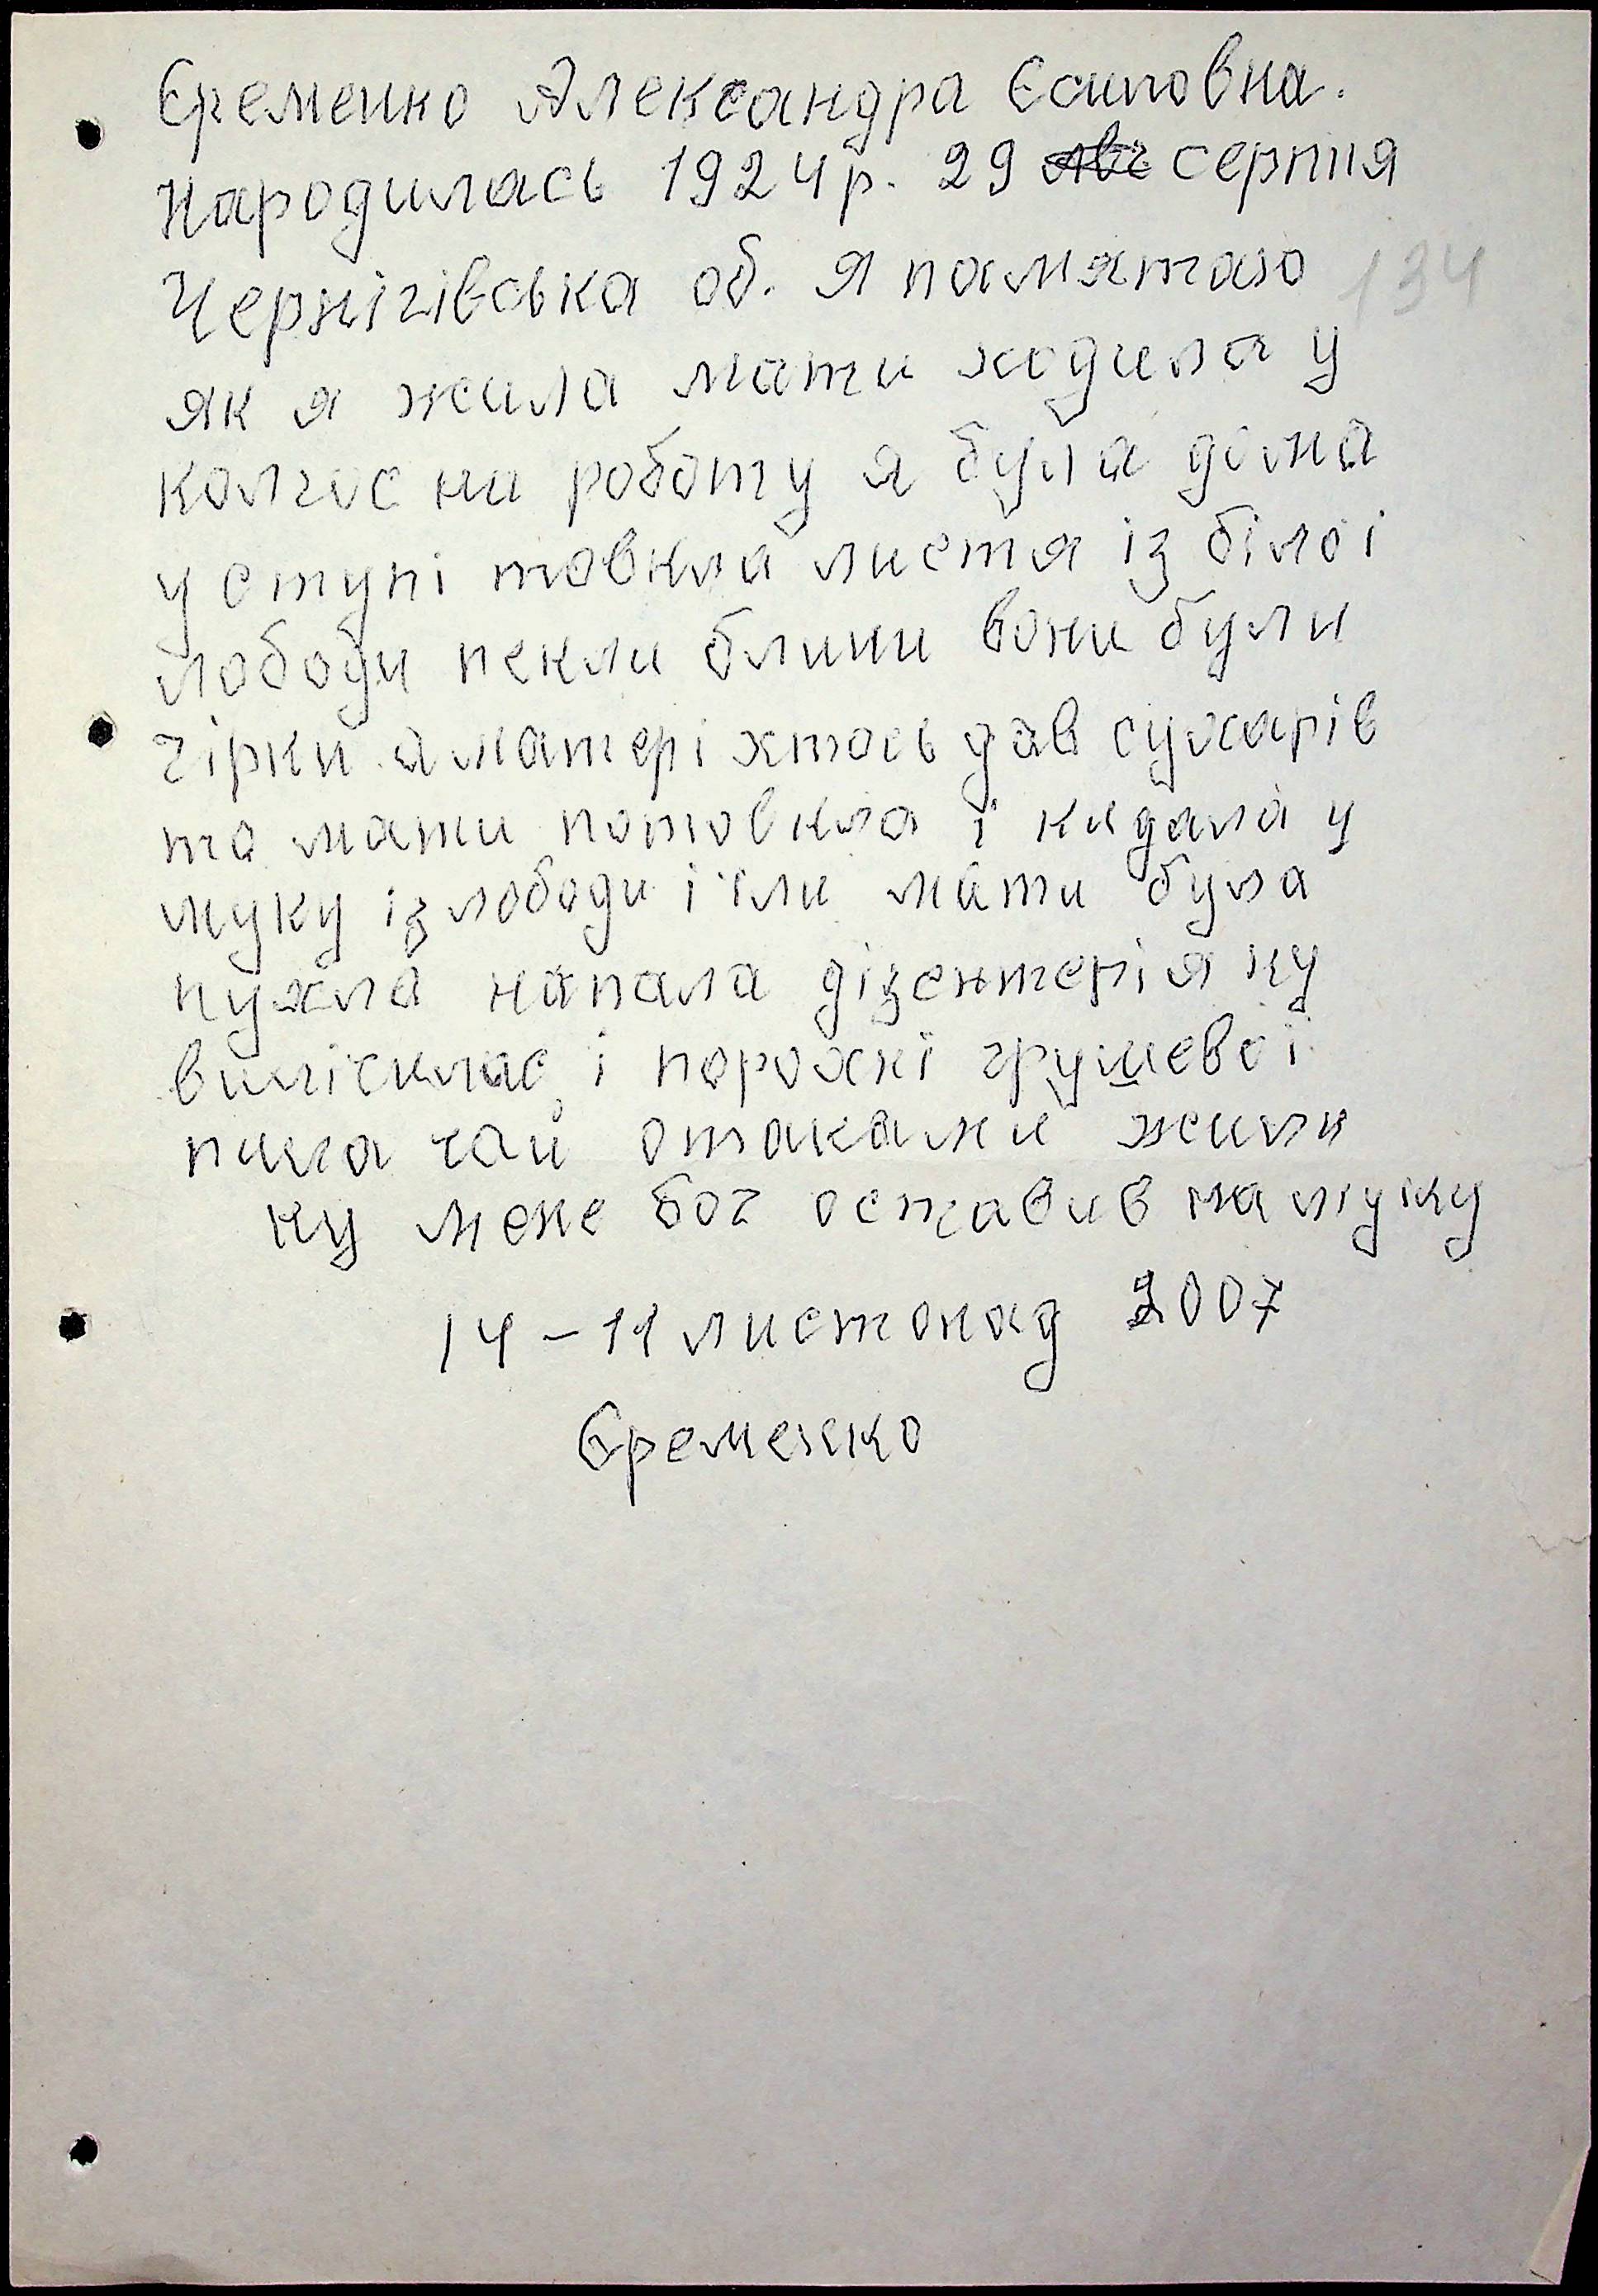 Єременко Александра Єсиповна.
Народилась 1924р. 29 серпня
Чернігівська об. Я памятаю 134
як я жила мати ходила у
колгос на роботу я була дома
у ступі товкла листя із білоі
лободи пекли блини вони були
гіркі а матері хтось дав сухарів
то мати потовкла і кидала у
муку із лободи і їли мати була
пухла напала дізентерія ну
і порохні грушевої
пила чай отаками жили
ну мене бог оставив на муку
14-11 листопад 2007
Єременко